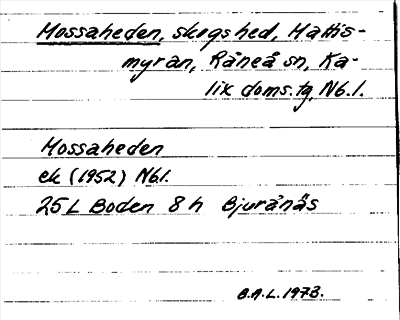 Mossaheden, skogshed, Mattis-
myran, Råneå sn, Ka-
lix doms.tg, Nb.l.
Mossaheden
ek (1952) Nbl.
25 L Boden 8 h Bjurånäs
B.A.L. 1973.